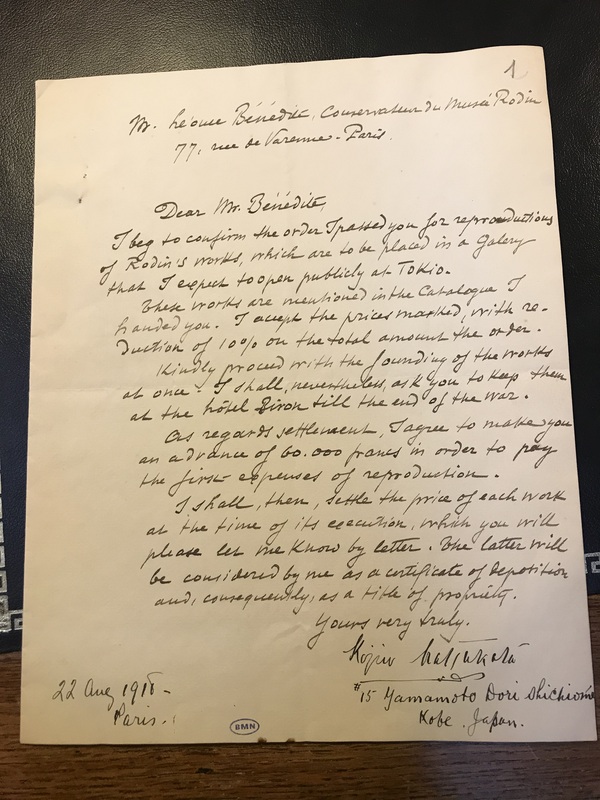 1
Mr. Léonce Bénédite, Conservateur du Musée Rodin
77, rue de Varenne - Paris.
Dear Mr. Bénédite,
I beg to confirm the order I passed you for reproductions
of Rodin's works, which are to be placed in a Galery
that I expect to open publicly at Tokio.
These works are mentioned in the Catalogue I
handed you. I accept the prices marked, with re-
duction of 10% on the total amount the order.
Kindly proceed with the founding of the works
at once. I shall, nevertheless, ask you to keep them
at the hôtel Biron till the end of the war.
As regards settlement, I agree to make you
an advance of 60.000 francs in order to pay
the first expenses of reproduction.
I shall, then, settle the price of each work
at the time of its execution, which you will
please let me know by letter. The latter will
be considered by me as a certificate of depotition
and, consequently, as a title of propriety.
Yours very truly.
Kojiro Matsukata
#15 Yamamoto Dori Shichiome
Kobe. Japan.
22 Aug 1918 -
Paris.
BMN